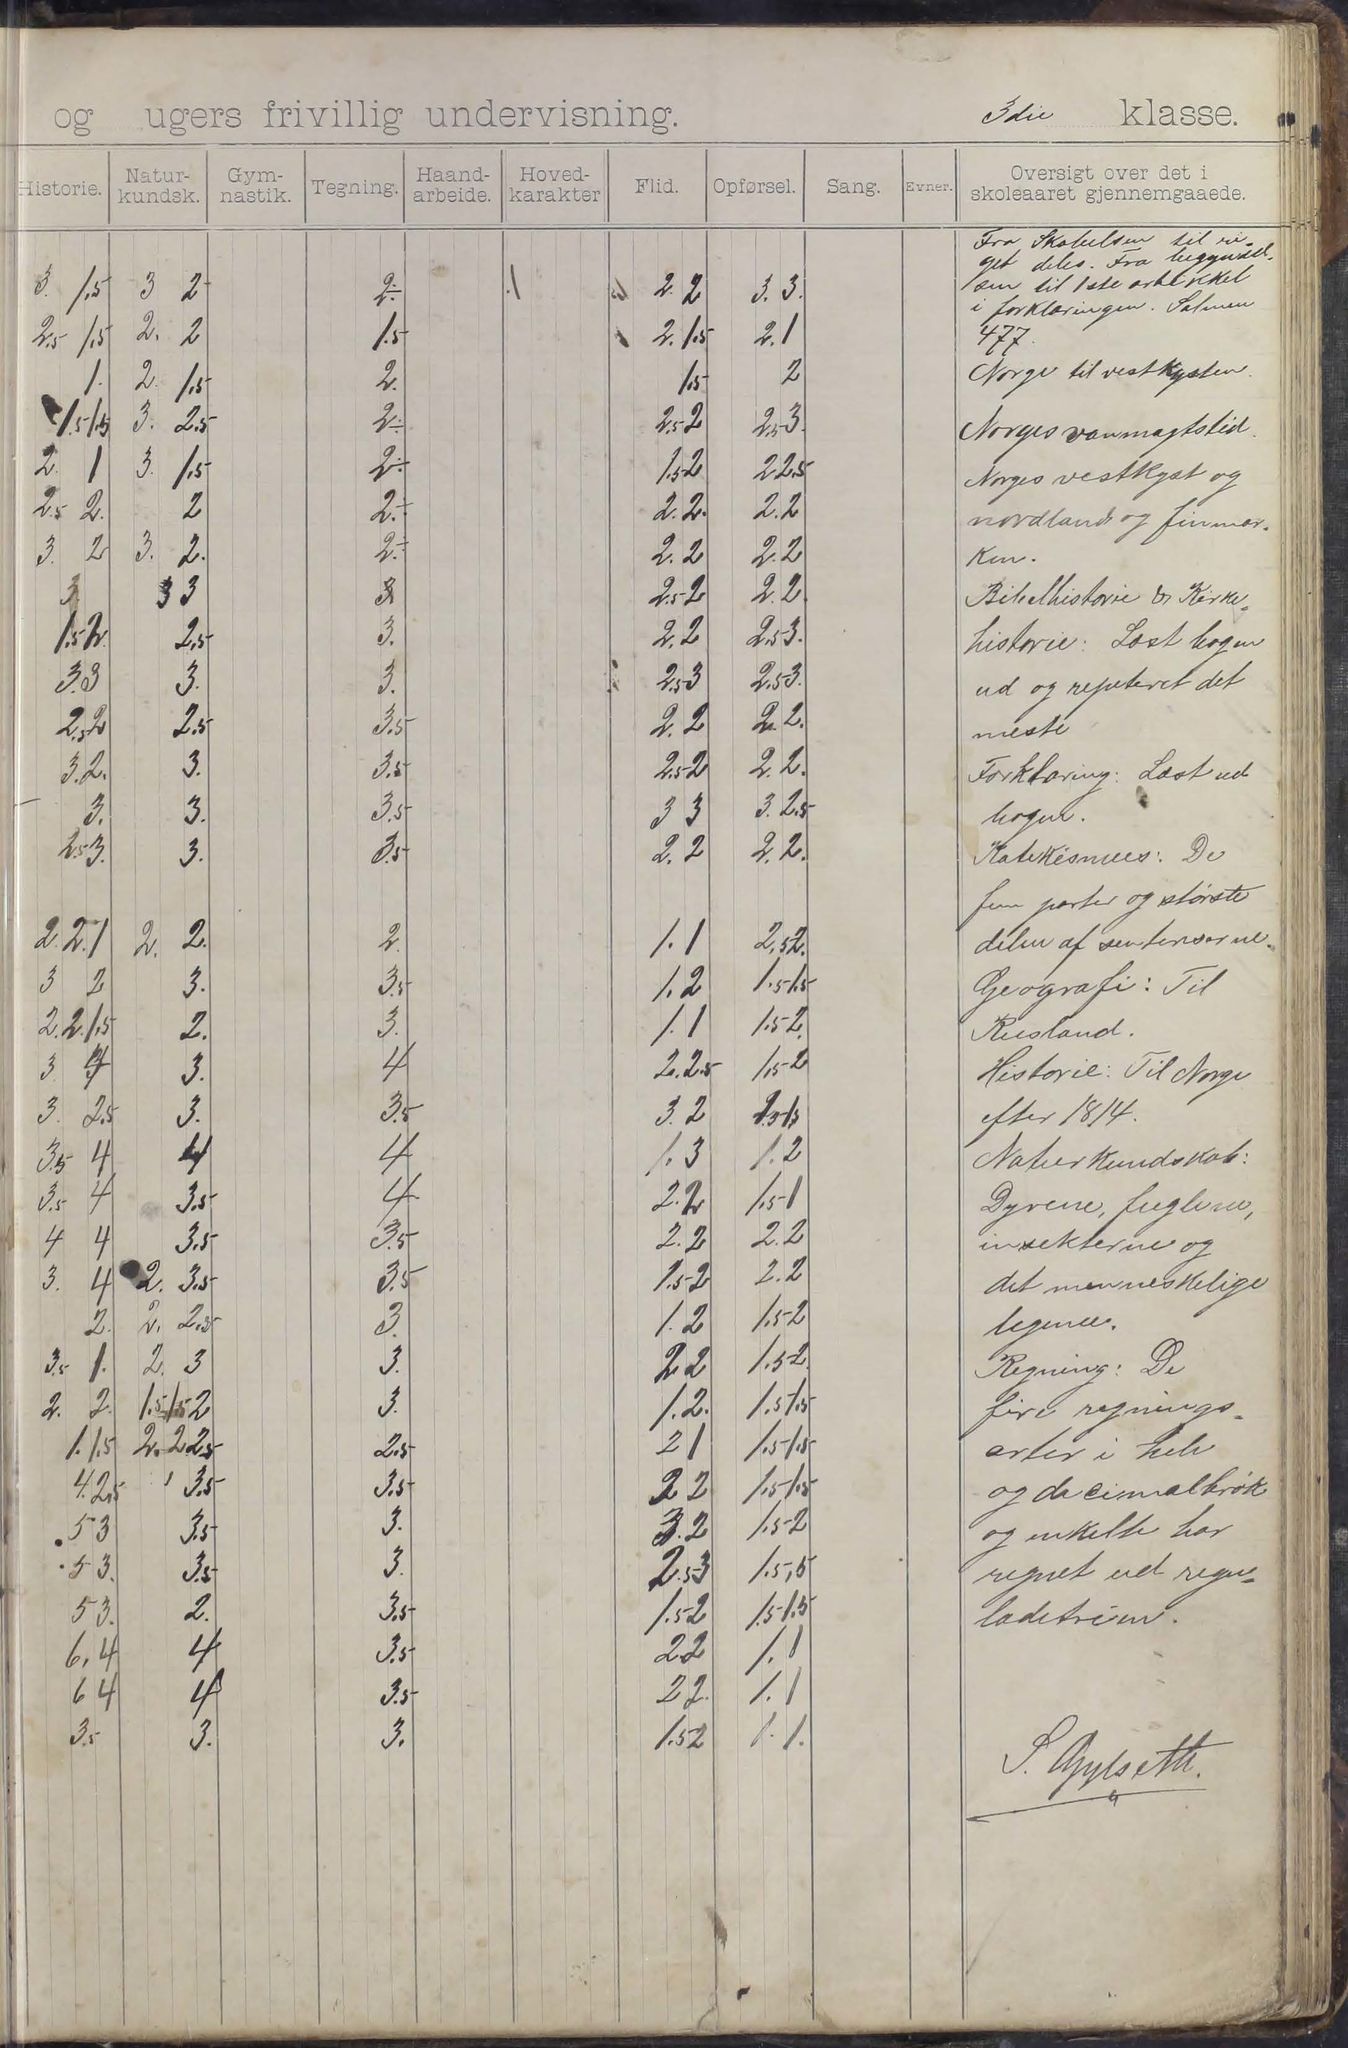 og ugers frivillig undervisning. 3die klasse.
Historie. Natur-kundsk. Gym-nastik. Tegning. Haand-arbeide. Hoved-karakter Flid. Opførsel. Sang. Evner. Oversigt over det i skoleaaret gjennemgaaede.
Fra Skabelsen til ri-
get deles. Fra begyndel-
3. 1.5 3 2 2÷ 2. 2 3. 3. sen til 1ste artikkel
i forklaringen. Salmen
2.5 1.5 2. 2 1.5 2. 1.5 2. 1 477.
1. 2. 1.5 2. 1.5 2 Norge til vestkysten.
1.5 1.5 3. 2.5 2÷ 2.5 2 2.5 3. Norges vanmagtstid.
2. 1 3. 1.5 2÷ 1.5 2 2 2.5 Norges vestkyst og
2.5 2. 2 2.÷ 2. 2. 2. 2 nordland og finmar-
3. 2 3. 2. 2÷ 2. 2 2 2 ken.
3 3 3 3 2.5 2 2. 2. Bibelhistorie & Kirke-
1.5 2. 2.5 3. 2. 2 2.5 3. historie: Læst bogen
3. 3 3. 3. 2.5 3 2.5 3. ud og repeteret det
2.5 2 2.5 3.5 2. 2 2. 2. meste
3. 2. 3. 3.5 2.5 2 2. 2. Forklaring: Læst ud
3. 3. 3.5 3 3 3. 2.5 bogen.
2.5 3. 3. 3.5 2. 2 2. 2. Katekismus: De
fem parter og største
2. 2. 1 2. 2. 2. 1. 1 2.5 2. delen af sentenserne.
3 2 3. 3.5 1. 2 1.5 1.5 Geografi: Til
2. 2. 1.5 2. 3. 1. 1 1.5 2. Rusland.
3 4 3. 4 2. 2.5 1.5 2 Historie: Til Norge
3. 2.5 3. 3.5 3. 2 efter 1814.
3.5 4 4 4 1. 3 1. 2 Naturkundskab:
3.5 4 3.5 4 2. 2 1.5 1 Dyrene, fuglene,
4 4 3.5 3.5 2. 2 2. 2 insekterne og
3. 4 2. 3.5 3.5 1.5 2 2. 2 det menneskelige
2. 2. 2.5 3. 1. 2 1.5 2 legeme.
3.5 1. 2. 3 3. 2 2 1.5 2. Regning: De
2. 2. 1.5 1.5 2 3. 1. 2. 1.5 1.5 fire regnings-
1. 1.5 2. 2 2.5 2.5 2 1 1.5 1.5 arter i hele
4. 2.5 3.5 3.5 2 2 1.5 1.5 og decimalbrøk
5 3 3.5 3. 3. 2 1.5 2 og enkelte har
5 3. 3.5 3. 2.5 3 regnet ud regu-
5 3. 2. 3.5 1.5 2 1.5 1.5 ladetrien.
6. 4 4 3.5 2 2 1. 1
6 4 4 3.5 2 2. 1. 1
3.5 3. 3. 1.5 2 1. 1.
S. Gylseth.